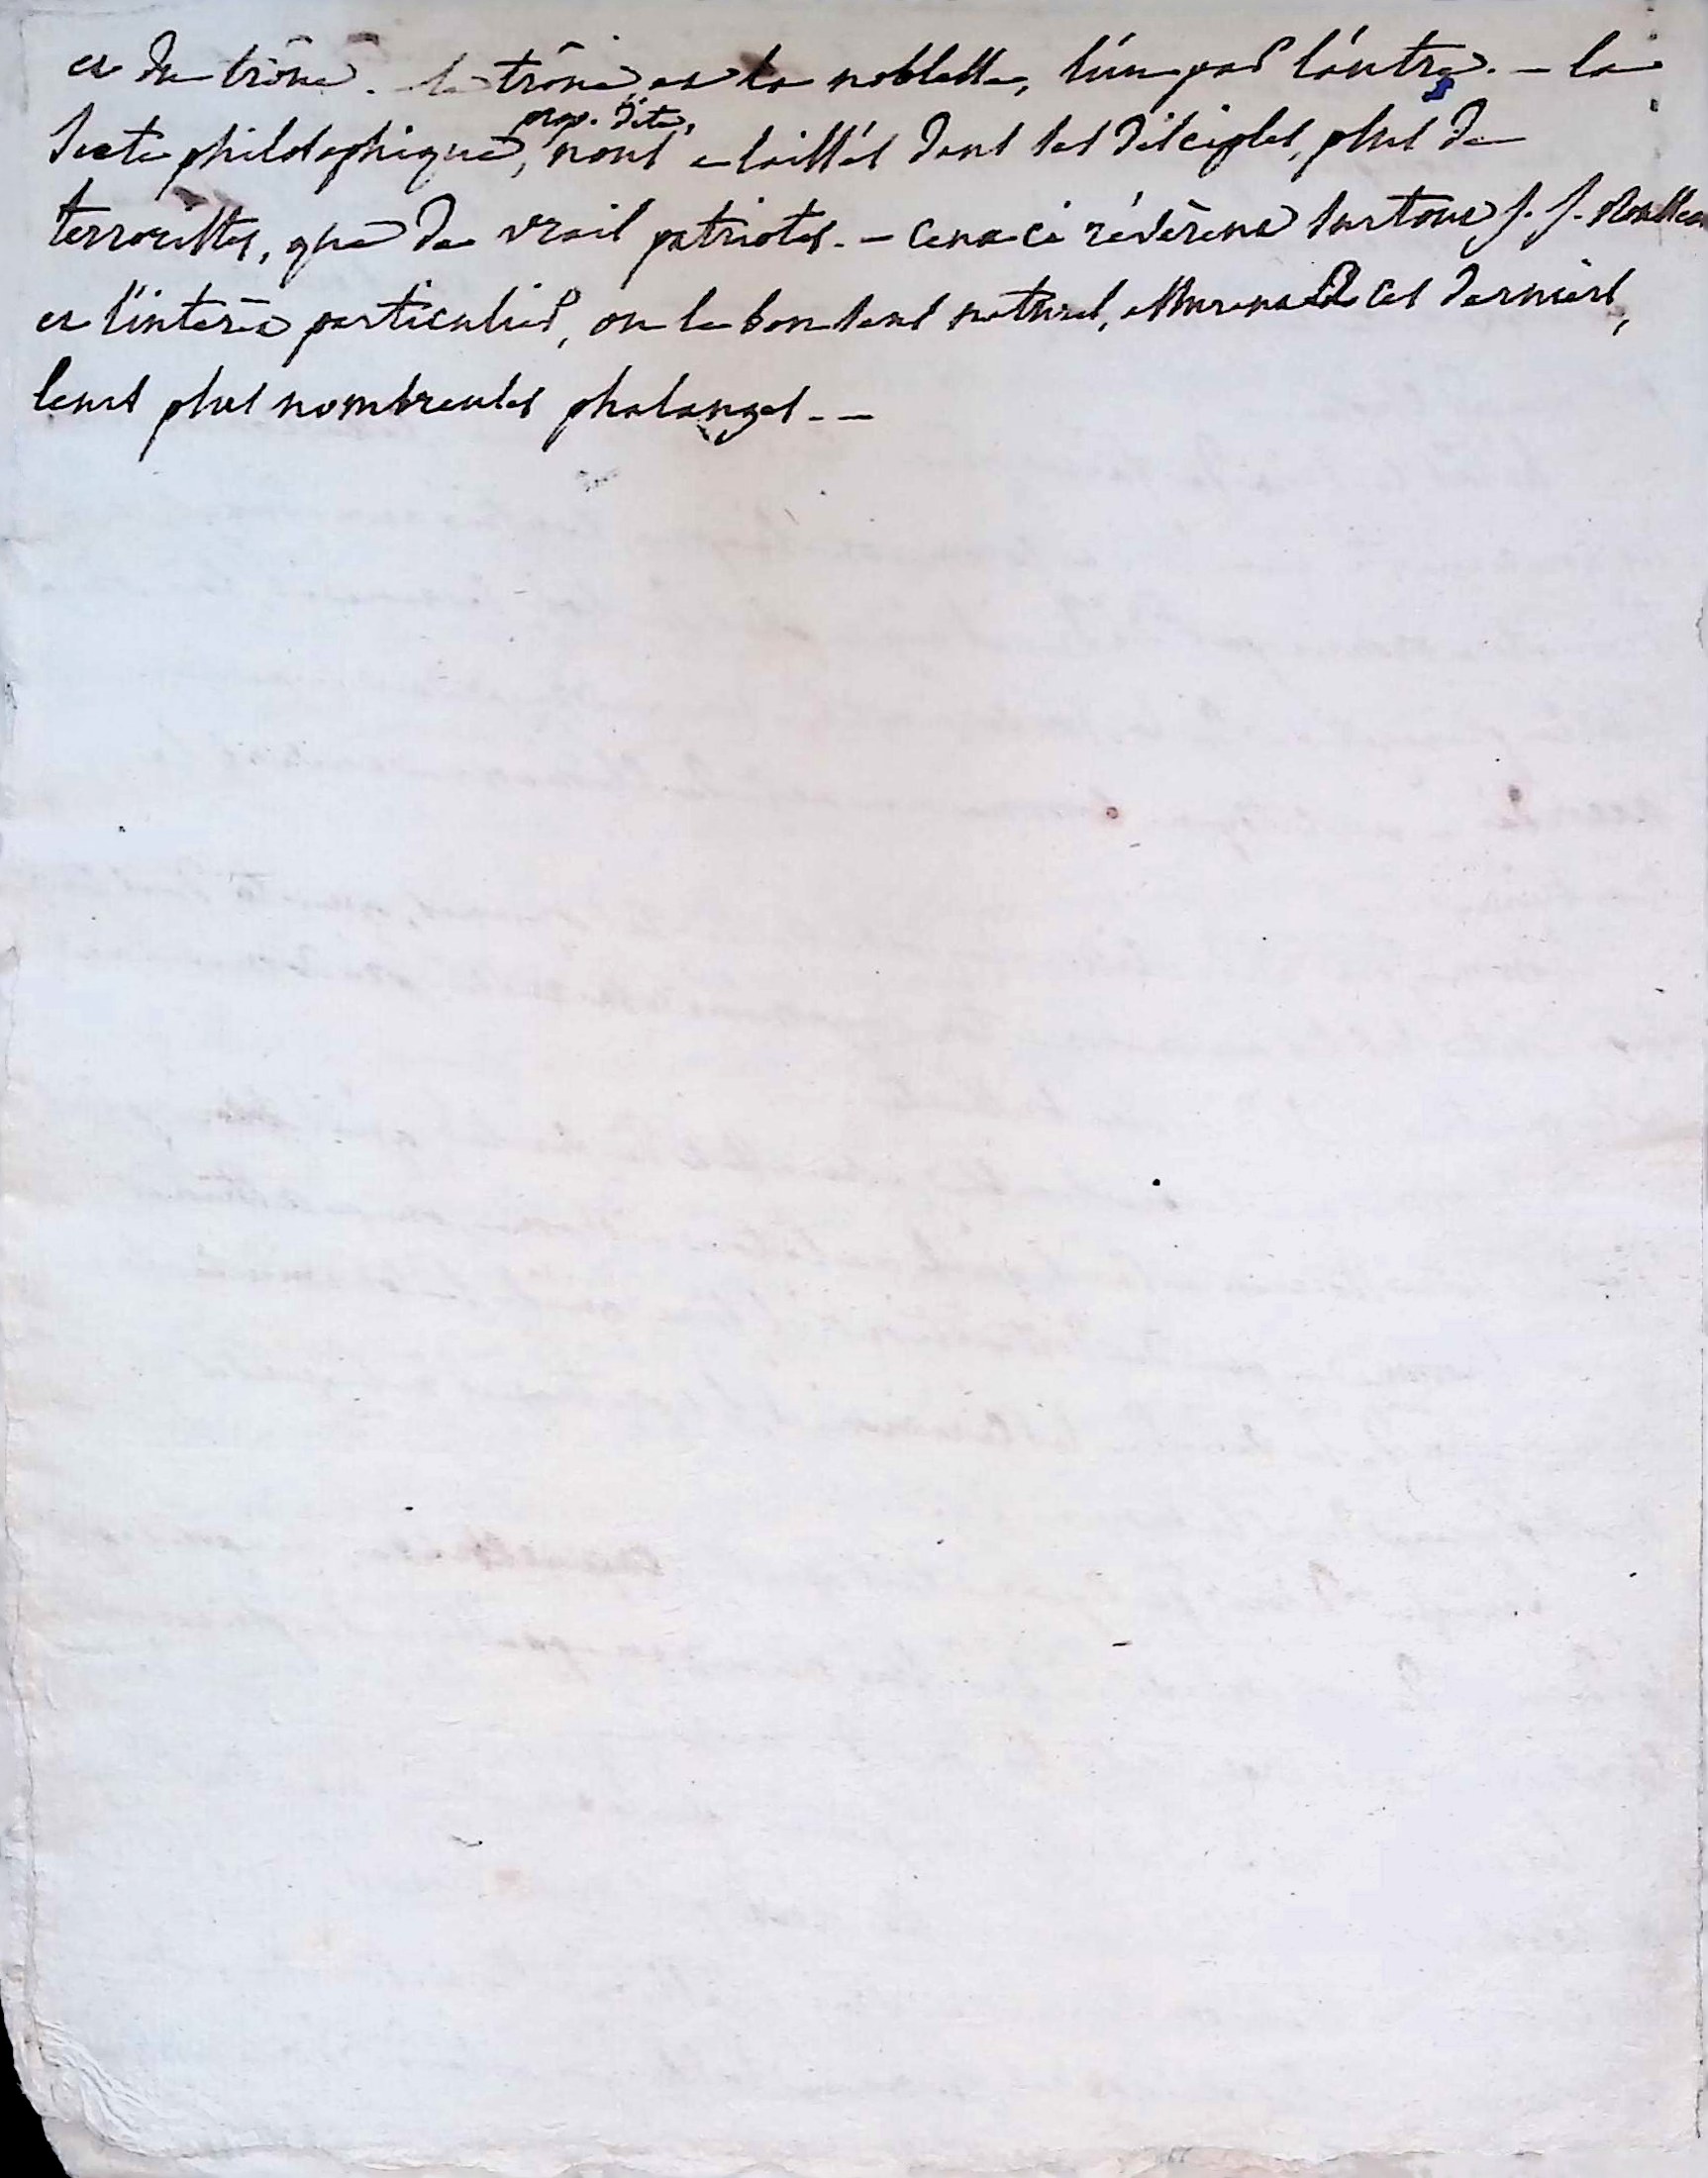 et du trône. le trône, et la noblesse, l'un par l'autre. — la
prop. dite,
secte philosophique, nous a laissés dans ses disciples, plus de
terroristes, que de vrais patriotes. — Ceux ci révèrent surtout J. J. Rousseau
et l'intérêt particulier, ou le bon sens naturel, assurent à ces derniers,
leurs plus nombreuses phalanges. —